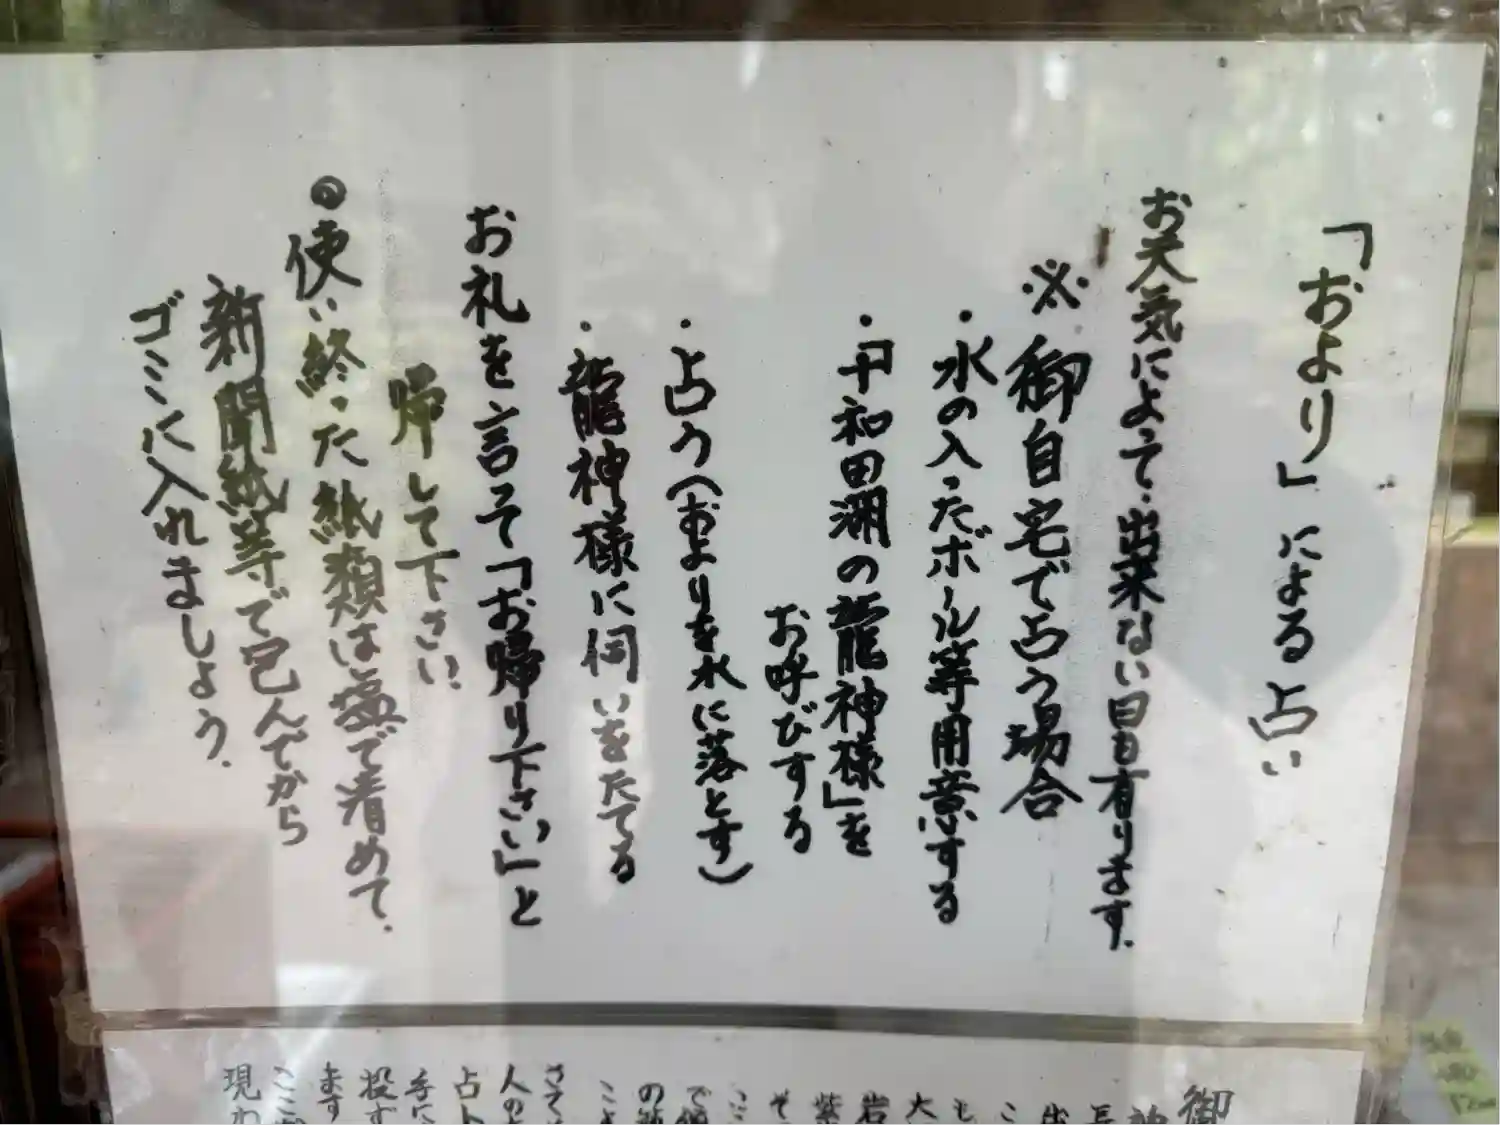 「およリ」による占い
お天気によって出来ない日も有ります.
※御自宅で占う場合
・水の入ったボール等用意する
・「十和田湖の龍神様」を
お呼びする
・占う(およりを水に落とす)
・龍神様に伺いをたてる
お礼を言って「お帰り下さい」と
帰して下さい.
◎使い終った紙類は塩で清めて.
新聞紙等で包んでから
ゴミに入れましょう.
御
大
岩
紫
占
現わ